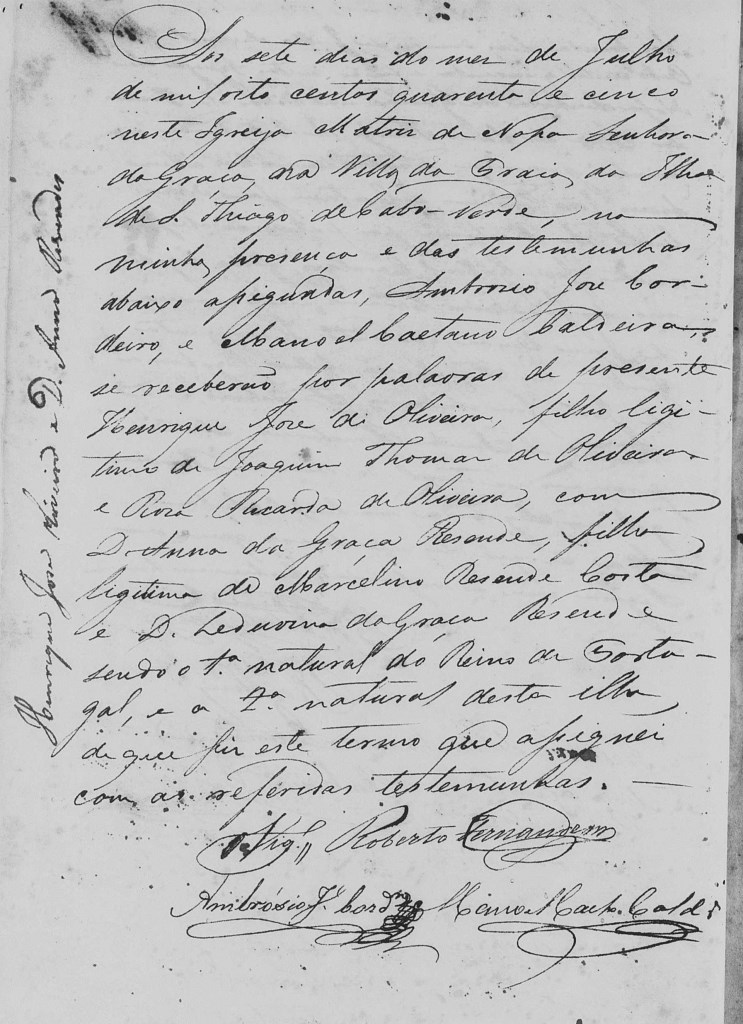 Aos sete dias do mez de Julho
de mil oito centos quarenta e cinco
neste Igreija Matriz de Nossa Senhora
da Graça, na Villa da Praia, da Ilha
de S. Thiago de Cabo-Verde, na
minha presença e das testemunhas
abaixo assignadas, Ambrozio Joze Cor-
deiro, e Manoel Caetano Caldeira,
se receberaõ por palavras de presente
Henrique Joze de Oliveira, filho ligi-
timo de Joaquim Thomaz de Oliveira
e Roza Ricarda de Oliveira, com
D. Anna da Graça Resende, filha
legitima de Marcelino Resende Costa
e D. Leduvina da Graça Resende
sendo o 1.º natural do Reino de Portu-
gal, e a 2.ª natural desta ilha
de que fiz este termo que assignei
com as referidas testemunhas.
O Vig.º Roberto Fernandes
Ambrósio J.e Cord.ro Manoel Caet.o Cald.ra
Henrique Jose Oliveira e D. Anna Resende